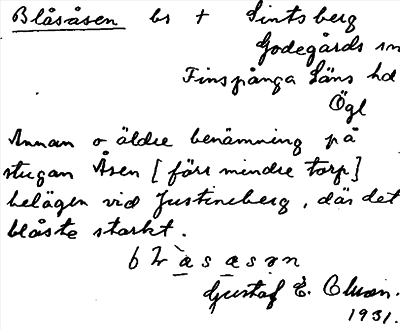 Blåsåsen bs + Sintsberg
Godegårds sn
Finspånga läns hd
Ögl
Annan o äldre benämning på
stugan Åsen [förr mindre torp]
belägen vid Justineberg, där det
blåste starkt.
Gustaf E.
1931.